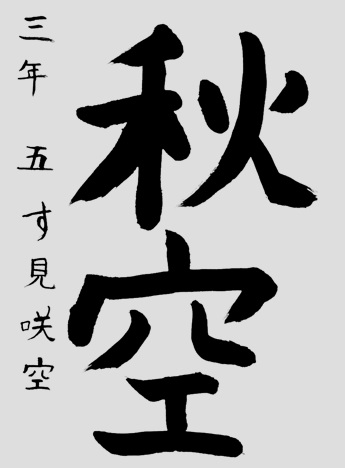 秋空
三年 五す見咲空